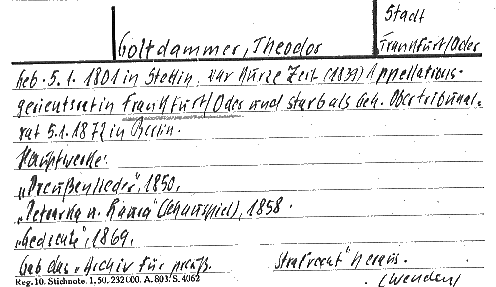 Stadt
Goltdammer, Theodor Frankfurt/Oder
geb. 5.1. 1801 in Stettin, war kurze Zeit (1839) Appellations-
gerichtsrat in Frankfurt/Oder und starb als Geh. Obertribunal-
rat 5.1.1872 in Berlin.
Hauptwerke:
„Preußenlieder", 1850.
„Petrarka u. Laura" (Schauspiel), 1858.
„Gedichte", 1869.
Gab das „Archiv für preuß. Strafrecht" heraus.
Reg. 10. Stichnote. 1. 50. 232 000. A. 803. S. 4062
(Wenden)